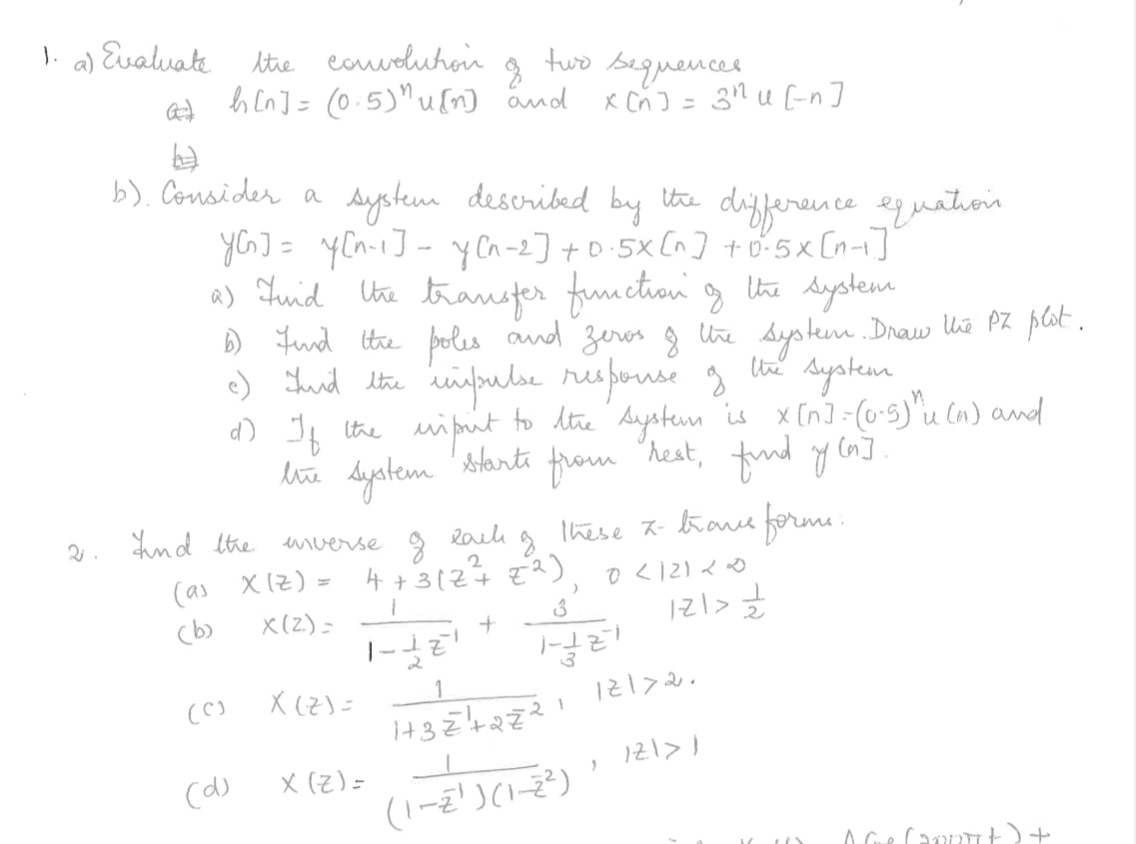 1. a) Evaluate the convolution of two sequences
h[n] = (0.5)ⁿ u[n] and x[n] = 3ⁿ u[-n]
b). Consider a system described by the difference equation
y[n] = y[n-1] - y[n-2] + 0.5x[n] + 0.5x[n-1]
a) Find the transfer function of the system
b) Find the poles and zeros of the system. Draw the PZ plot.
c) Find the impulse response of the system
d) If the input to the system is x[n] = (0.5)ⁿ u(n) and
the system starts from rest, find y(n].
2. Find the inverse of each of these z-transforms.
(a) X(z) = 4 + 3(z² + z⁻²), 0 < |z| < ∞
(b) X(z) = 1/(1 - 1/2 z⁻¹) + 3/(1 - 1/3 z⁻¹) |z| > 1/2
(c) X(z) = 1/(1 + 3z⁻¹ + 2z⁻²), |z| > 2.
(d) X(z) = 1/((1 - z⁻¹)(1 - z⁻²)), |z| > 1